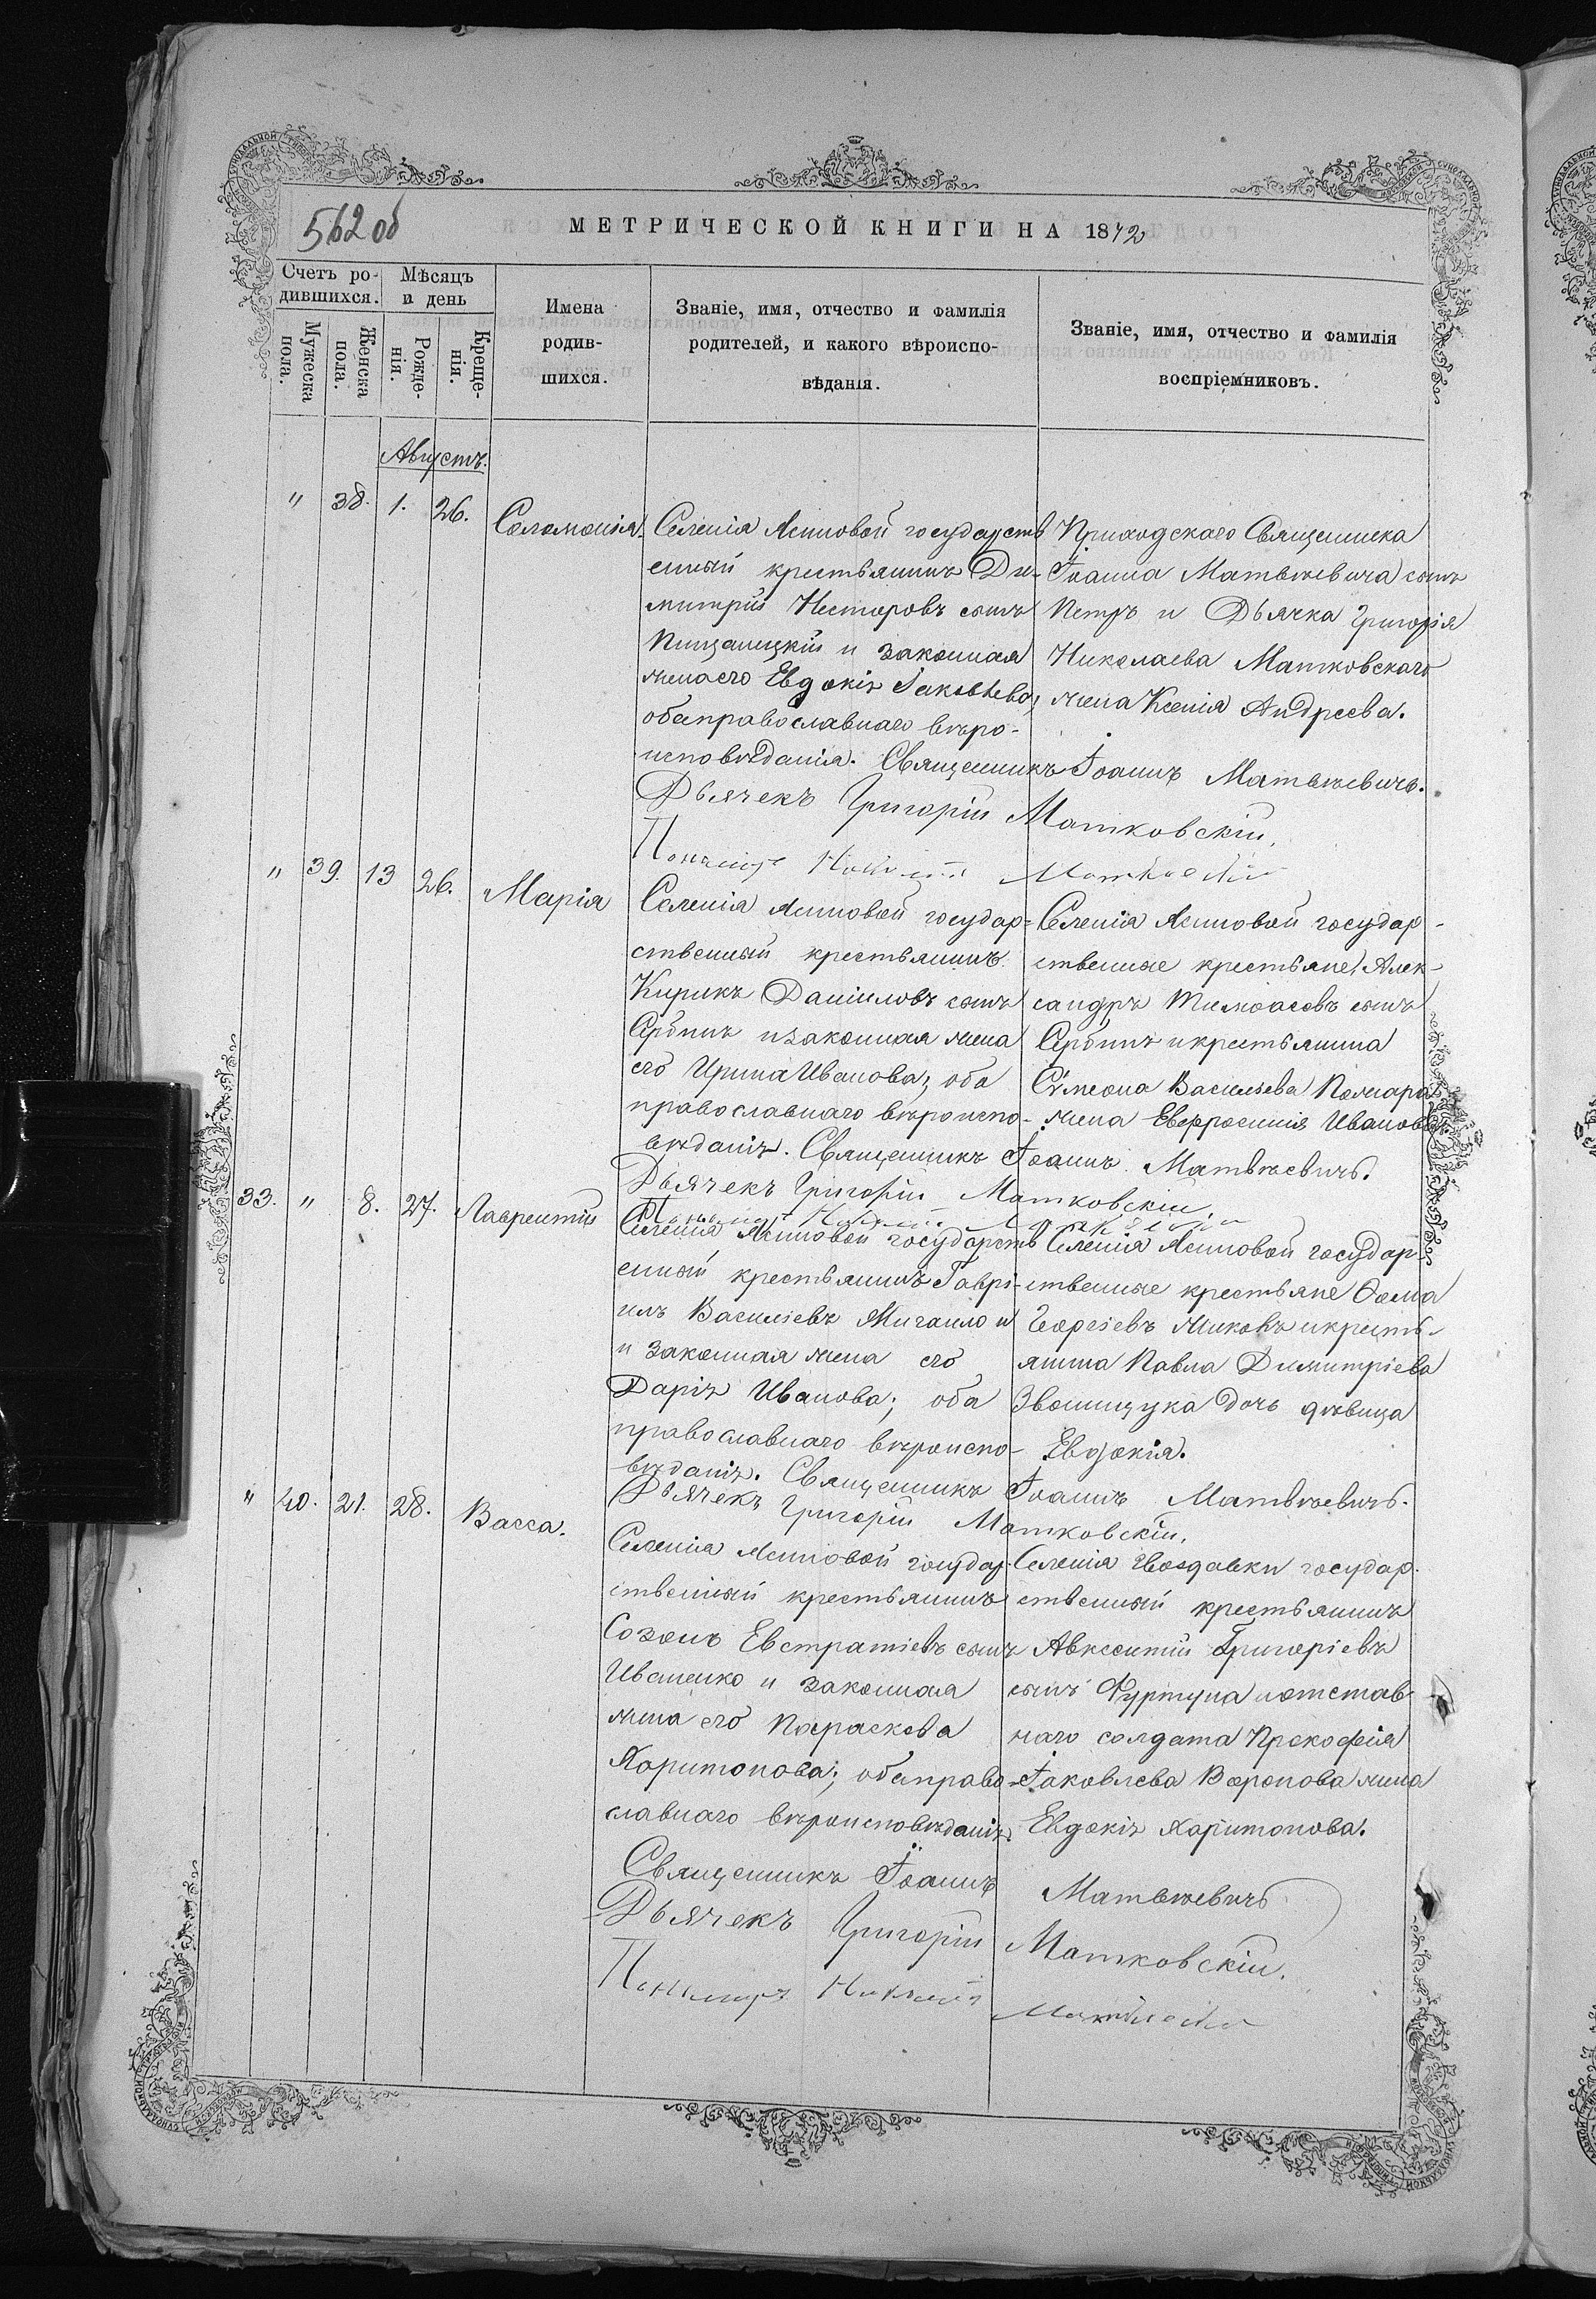 562 об
МЕТРИЧЕСКОЙ КНИГИ НА 1872
Счетъ ро-
дившихся.
Мужеска
пола.
Женска
пола.
Мѣсяцъ
и день
Рожде-
нія.
Креще-
нія.
Имена
родив-
шихся.
Званіе, имя, отчество и фамилія
родителей, и какого вѣроиспо-
вѣданія.
Званіе, имя, отчество и фамилія
воспріемниковъ.
Августъ.
" 38. 1. 26. Соломонія.
Селенія Ясиновой государств
енный крестьянинъ Ди-
митрій Несторовъ сынъ
и законная
жена его Евдокія Іаковлева,
оба православнаго вѣро-
исповѣданія. Священникъ Іоаннъ Матвѣевичъ.
Дьячекъ Григорій Матковскій.
Приходскаго Священника
Іоанна Матвѣевича сынъ
Петръ и Дьячка Григорія
Николаева Матковскаго
жена Ксенія Андреева.
" 39. 13 26. Марія
Селенія Ясиновой государ-
ственный крестьянинъ
Кирикъ Даніиловъ сынъ
Сербинъ и законная жена
его Ирина Иванова; оба
православнаго вѣроиспо-
вѣданія. Священникъ Іоаннъ Матвѣевичъ.
Дьячекъ Григорій Матковскій.
Селенія Ясиновой государ-
ственные крестьяне, Алек-
сандръ сынъ
Сербинъ и крестьянина
Сѵмеона Васильева
жена Евфросинія Иванова.
33. " 8. 27. Лаврентій
Селенія Ясиновой государств
енный крестьянинъ Гаврі-
илъ Василіевъ
и законная жена его
Дарія Иванова; оба
православнаго вѣроиспо-
вѣданія. Священникъ Іоаннъ Матвѣевичъ.
Дьячекъ Григорій Матковскій.
Селенія Ясиновой государ
ственные крестьяне Ѳома
Георгіевъ и кресть-
янина Павла Димитріева
дочь дѣвица
Евдокія.
" 40. 21. 28. Васса.
Селенія Ясиновой государ-
ственный крестьянинъ
Созонъ Евстратіевъ сынъ
Иваненко и законная
жена его Параскева
Харитонова; оба право-
славнаго вѣроисповѣданія.
Селенія Гвоздавки государ-
ственный крестьянинъ
Авксентій Григоріевъ
сынъ Фуртуна и отстав-
наго солдата Прокофія
Іаковлева Воронова жена
Евдокія Харитонова.
Священникъ Іоаннъ Матвѣевичъ
Дьячекъ Григорій Матковскій.
Пономарь